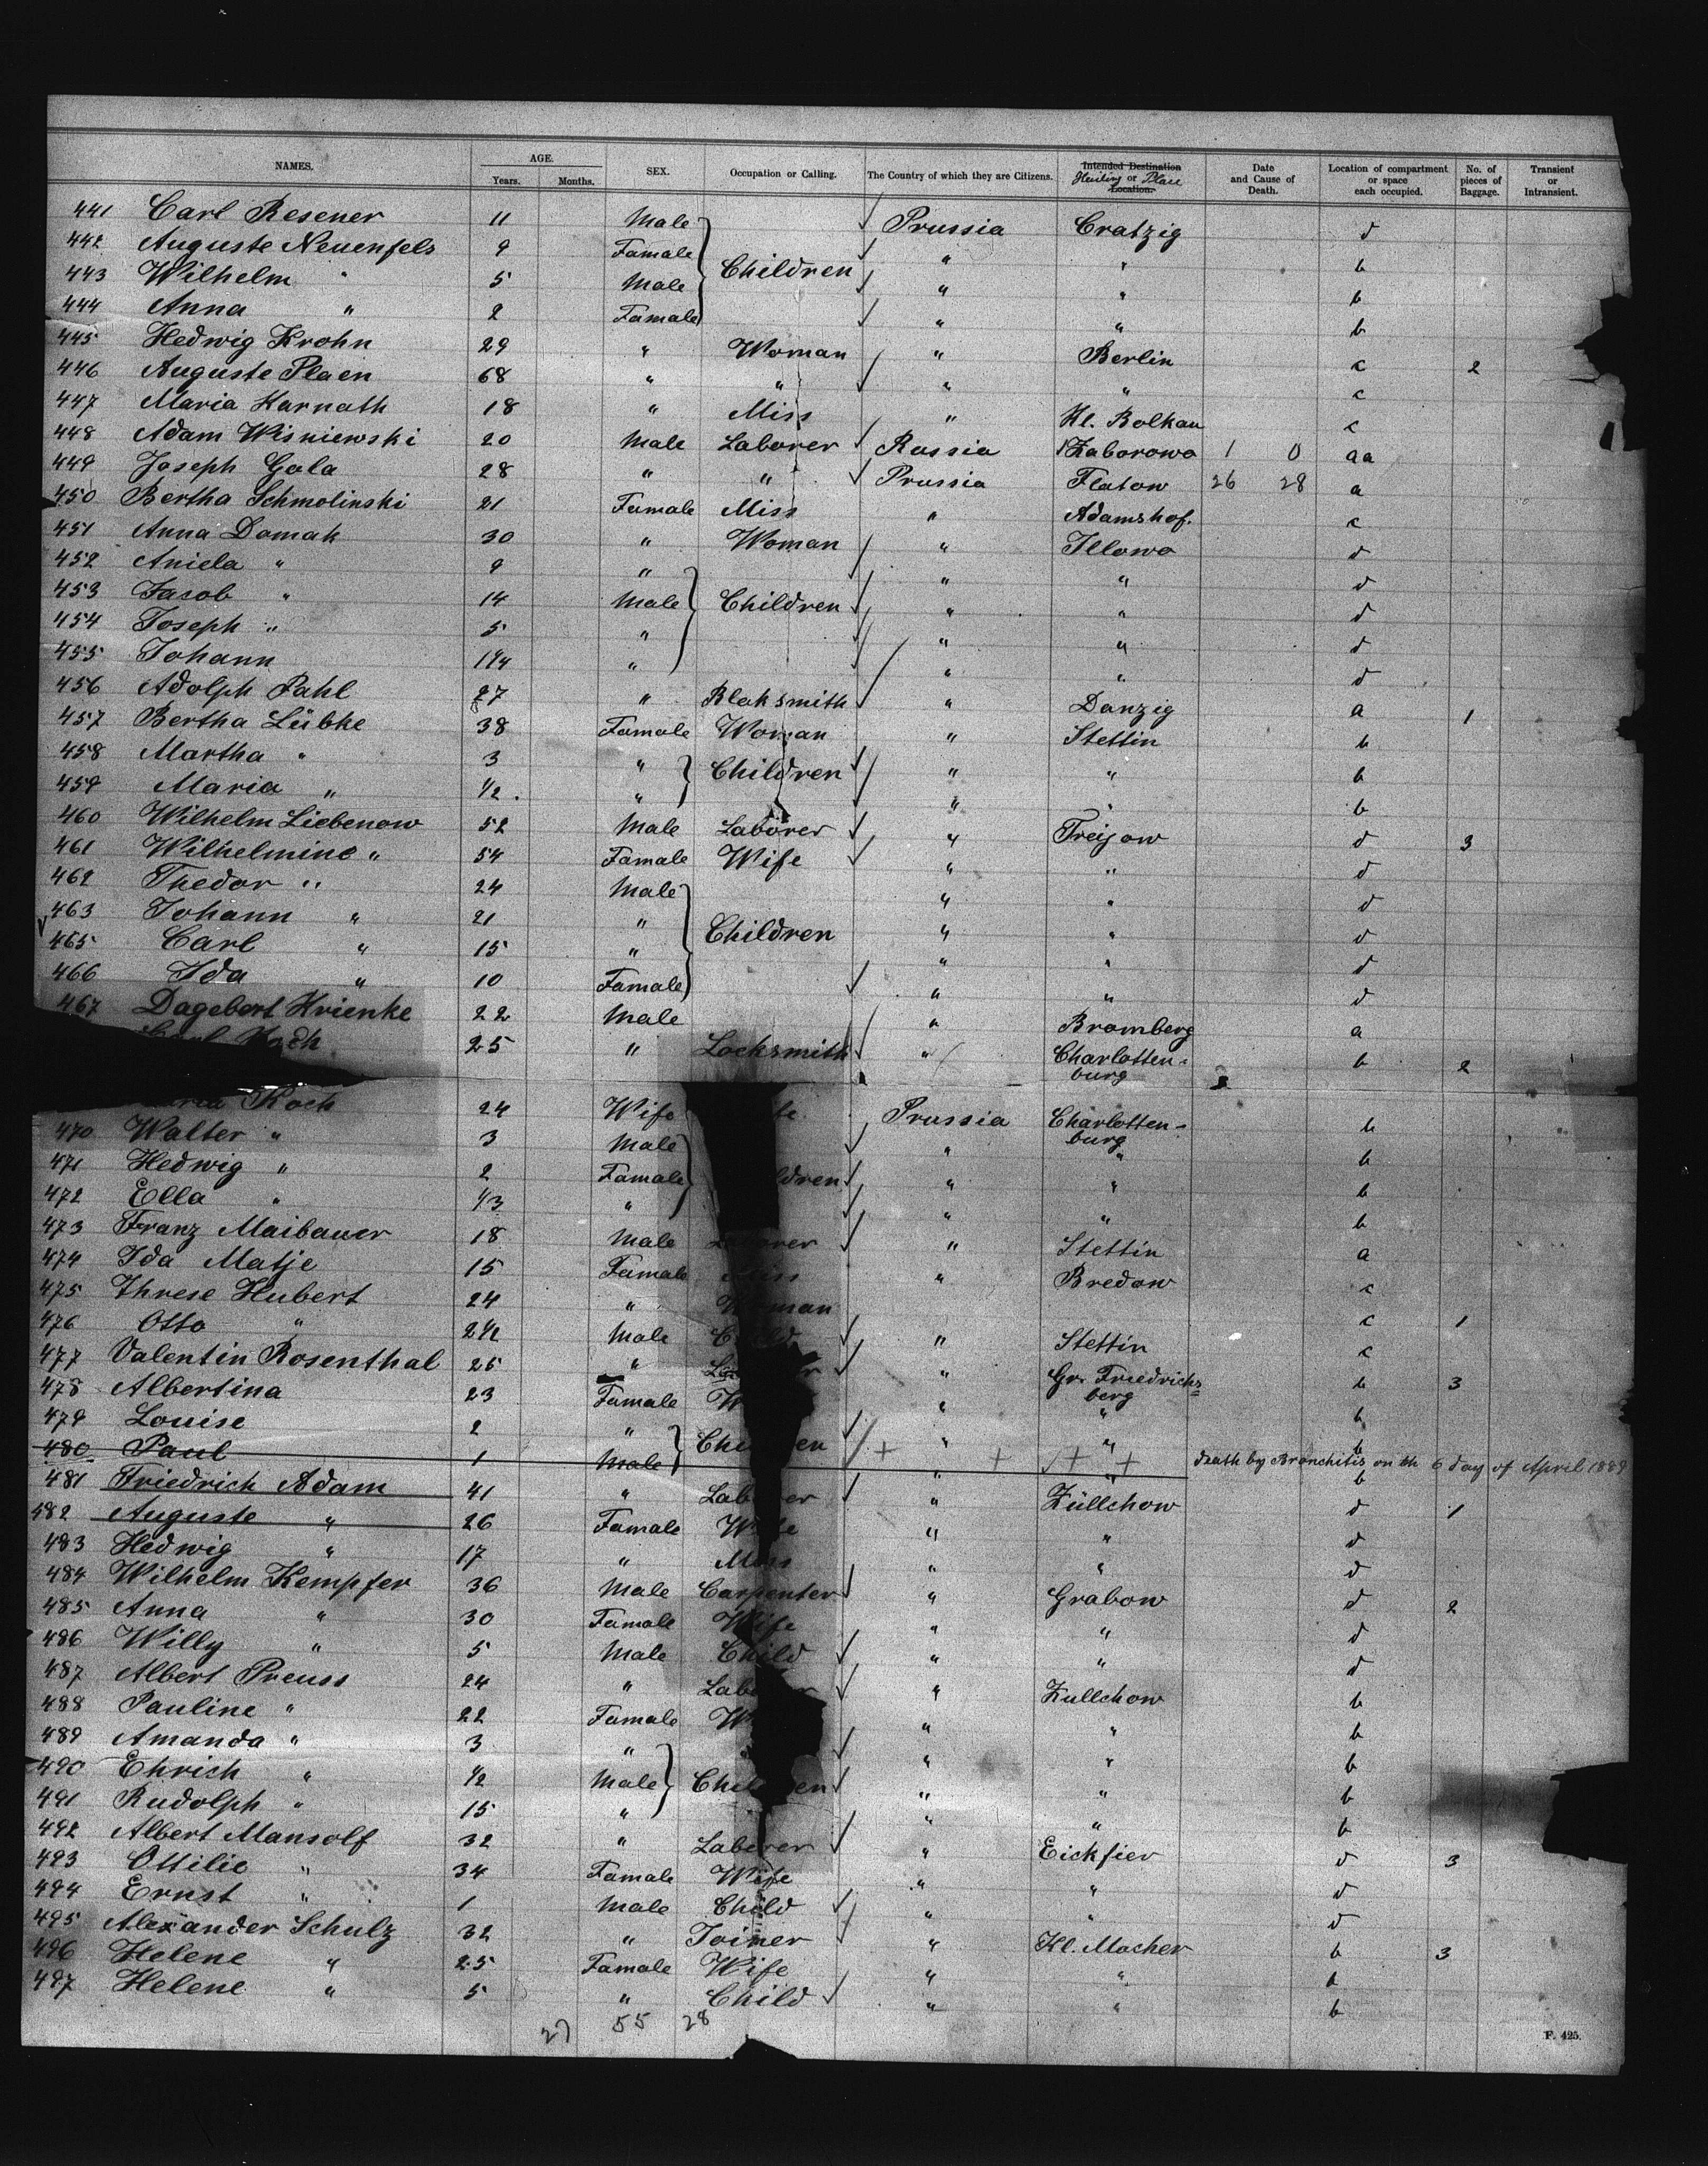 NAMES. AGE. Years. Months. SEX. Occupation or Calling. The Country of which they are Citizens. Intended Destination or Location. Place Date and Cause of Death. Location of compartment or space each occupied. No. of pieces of Baggage. Transient or Intransient.
441 Carl Resener 11 Male Prussia Cratzig d
442 Auguste Neuenfels 9 Famale " " b
443 Wilhelm " 5 Male Children " " b
444 Anna " 2 Famale " " b
445 Hedwig Krohn 29 " Woman " Berlin c 2
446 Auguste Plaen 68 " " " " c
447 Maria Karnath 18 " Miss " Kl. Bolkau c
448 Adam Wisniewski 20 Male Laborer Russia Zaborowo 1 0 aa
449 Joseph Gala 28 " " Prussia Flatow 26 28 a
450 Bertha Schmolinski 21 Famale Miss " Adamshof. c
451 Anna Domak 30 " Woman " Illowo d
452 Aniela " 9 " " " d
453 Jasob " 14 Male Children " " d
454 Joseph " 5 " " " d
455 Johann 1¼ " " " d
456 Adolph Pahl 27 " Blaksmith " Danzig a 1
457 Bertha Lübke 38 Famale Woman " Stettin b
458 Martha " 3 " Children " " b
459 Maria " ½ " " " b
460 Wilhelm Liebenow 52 Male Laborer " Treijow d 3
461 Wilhelmine " 54 Famale Wife " " d
462 Thedor " 24 Male " " d
463 Johann " 21 " Children " " d
465 Carl " 15 " " " d
466 Ida " 10 Famale " " d
467 Dagebert Krienke 22 Male " Bromberg a
Carl Koch 25 " Locksmith " Charlottenburg b 2
Koch 24 Wife Prussia Charlottenburg b
470 Walter " 3 Male " " b
471 Hedwig " 2 Famale ldren " " b
472 Ella " ⅓ " " " b
473 Franz Maibauer 18 Male rer " Stettin a
474 Ida Matje 15 Famale Miss " Bredow c
475 Threse Hubert 24 " Woman c 1
476 Otto " 2½ Male " Stettin c
477 Valentin Rosenthal 25 " " Gr. Friedrichsberg b 3
478 Albertina 23 Famale W " " b
479 Louise 2 " Children " " b
480 Paul 1 Male + + + + " death by Bronchitis on th 6 day of April 1889 b
481 Friedrich Adam 41 " Laborer " Züllchow d 1
482 Auguste " 26 Famale Wife " " d
483 Hedwig " 17 " Miss " " d
484 Wilhelm Kempfer 36 Male Carpenter " Grabow d 2
485 Anna " 30 Famale Wife " " d
486 Willy " 5 Male Child " " d
487 Albert Preuss 24 " Laborer " Zullchow b
488 Pauline " 22 Famale W " " b
489 Amanda " 3 " " " b
490 Ehrich " ½ Male Children " " b
491 Rudolph " 15 " " " b
492 Albert Mansolf 32 " Laberer " Eickfier d 3
493 Ottilie " 34 Famale Wife " " d
494 Ernst " 1 Male Child " " d
495 Alexander Schulz 32 " Joiner " Kl. Mocher b 3
496 Helene " 25 Famale Wife " " b
497 Helene " 5 " Child " " b
27 55 28
F. 425.